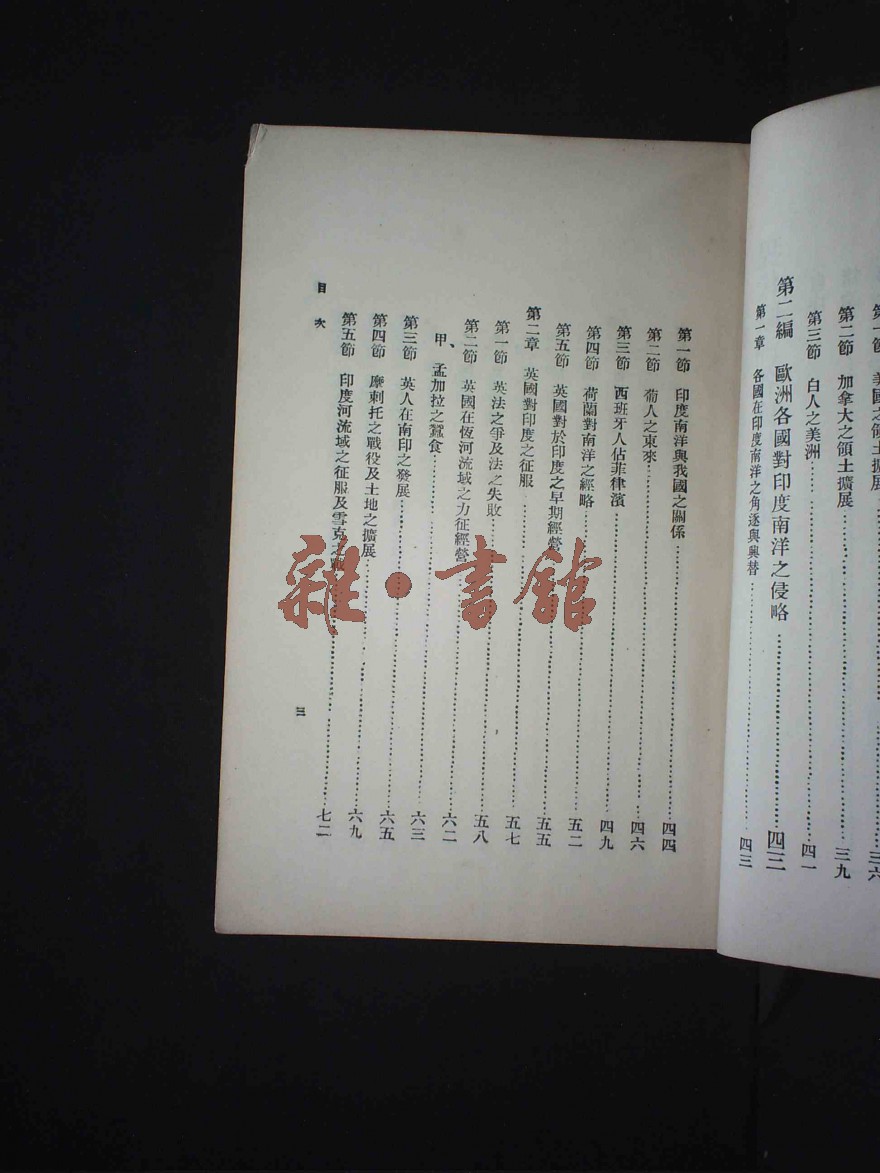 國之領土擴展
三六
第二節 加拿大之領土擴展
三九
第三節 白人之美洲
四一
第二編 歐洲各國對印度南洋之侵略
四三
第一章 各國在印度南洋之角逐與興替
四三
第一節 印度南洋與我國之關係
四四
第二節 葡人之東來
四六
第三節 西班牙人佔菲律濱
四九
第四節 荷蘭對南洋之經略
五二
第五節 英國對於印度之早期經營
五五
第二章 英國對印度之征服
五七
第一節 英法之爭及法之失敗
五八
第二節 英國在恆河流域之力征經營
六二
甲、孟加拉之蠶食
六三
第三節 英人在南印之發展
六五
第四節 摩剌托之戰役及土地之擴展
六九
第五節 印度河流域之征服及雪克之戰
七二
目次
三
雜·書館